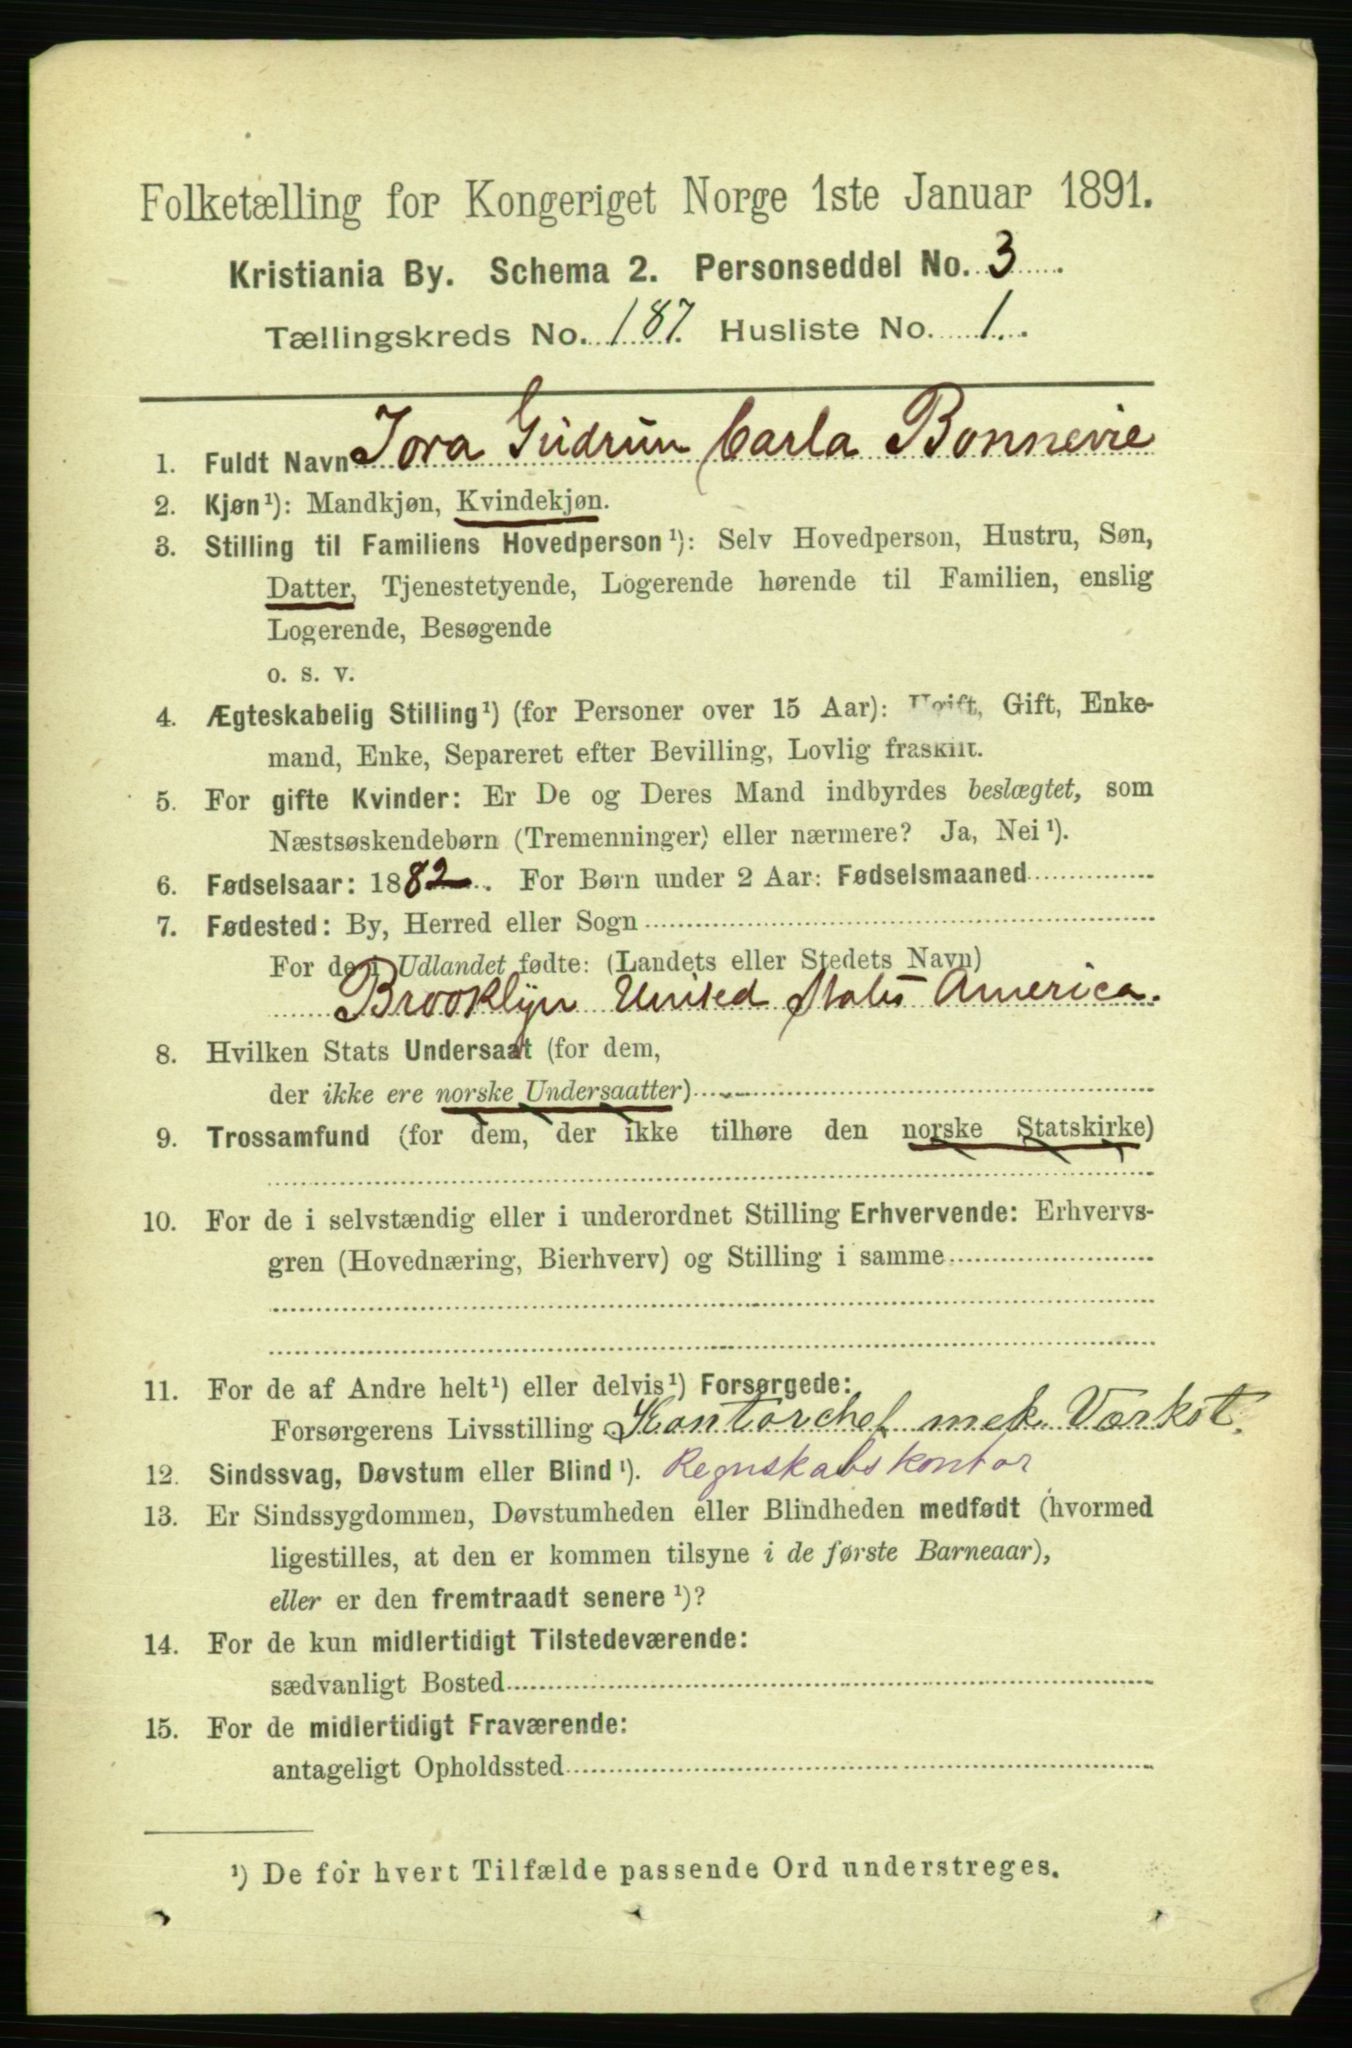 Folketælling for Kongeriget Norge 1ste Januar 1891.
Kristiania By. Schema 2. Personseddel No. 3
Tællingskreds No. 187. Husliste No. 1.
1. Fuldt Navn Tora Gudrun Carla Bonnevie
2. Kjøn¹): Mandkjøn, Kvindekjøn.
3. Stilling til Familiens Hovedperson¹): Selv Hovedperson, Hustru, Søn,
Datter, Tjenestetyende, Logerende hørende til Familien, enslig
Logerende, Besøgende
o. s. v.
4. Ægteskabelig Stilling¹) (for Personer over 15 Aar): Ugift, Gift, Enke-
mand, Enke, Separeret efter Bevilling, Lovlig fraskilt.
5. For gifte Kvinder: Er De og Deres Mand indbyrdes beslægtet, som
Næstsøskendebørn (Tremenninger) eller nærmere? Ja, Nei¹).
6. Fødselsaar: 1882. For Børn under 2 Aar: Fødselsmaaned
7. Fødested: By, Herred eller Sogn
For de i Udlandet fødte: (Landets eller Stedets Navn)
Brooklyn United States America.
8. Hvilken Stats Undersaat (for dem,
der ikke ere norske Undersaatter)
9. Trossamfund (for dem, der ikke tilhøre den norske Statskirke)
10. For de i selvstændig eller i underordnet Stilling Erhvervende: Erhvervs-
gren (Hovednæring, Bierhverv) og Stilling i samme
11. For de af Andre helt¹) eller delvis¹) Forsørgede:
Forsørgerens Livsstilling Kontorchef mek. Værkst.
12. Sindssvag, Døvstum eller Blind¹). Regnskabskontor
13. Er Sindssygdommen, Døvstumheden eller Blindheden medfødt (hvormed
ligestilles, at den er kommen tilsyne i de første Barneaar),
eller er den fremtraadt senere¹)?
14. For de kun midlertidigt Tilstedeværende:
sædvanligt Bosted
15. For de midlertidigt Fraværende:
antageligt Opholdssted
¹) De for hvert Tilfælde passende Ord understreges.